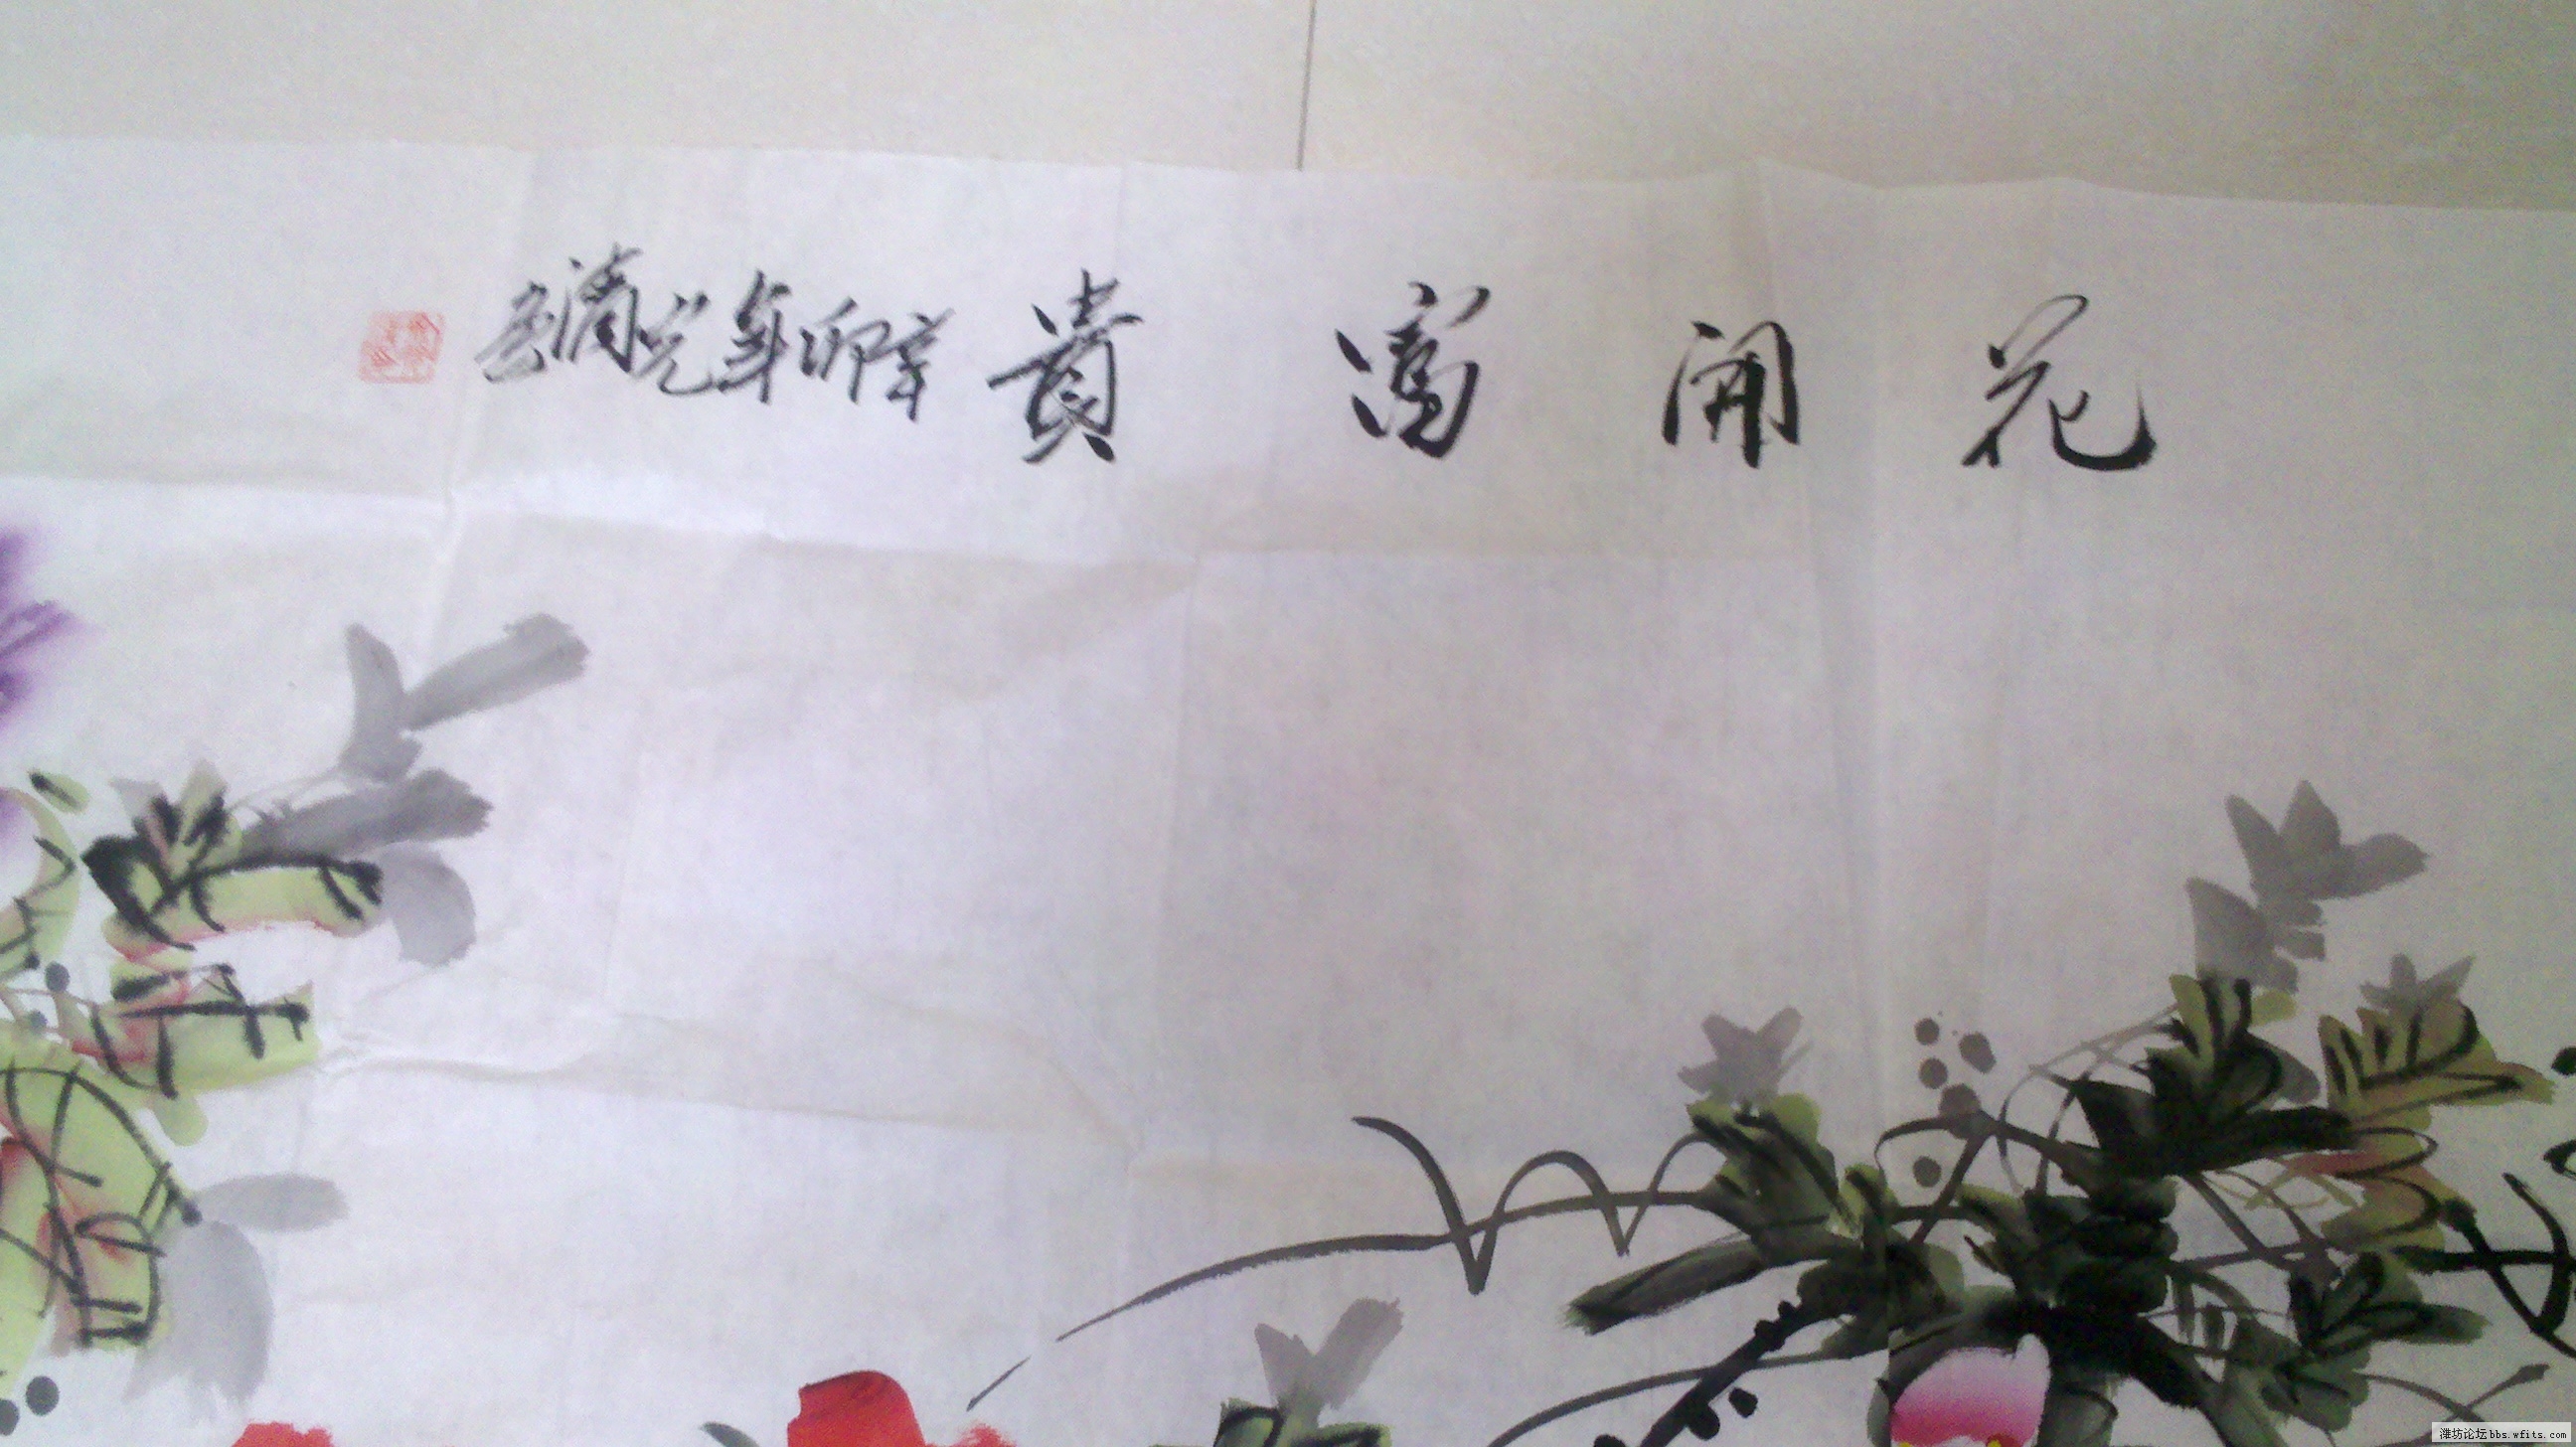 花開富貴 辛卯年
潍坊论坛bbs.wfits.com